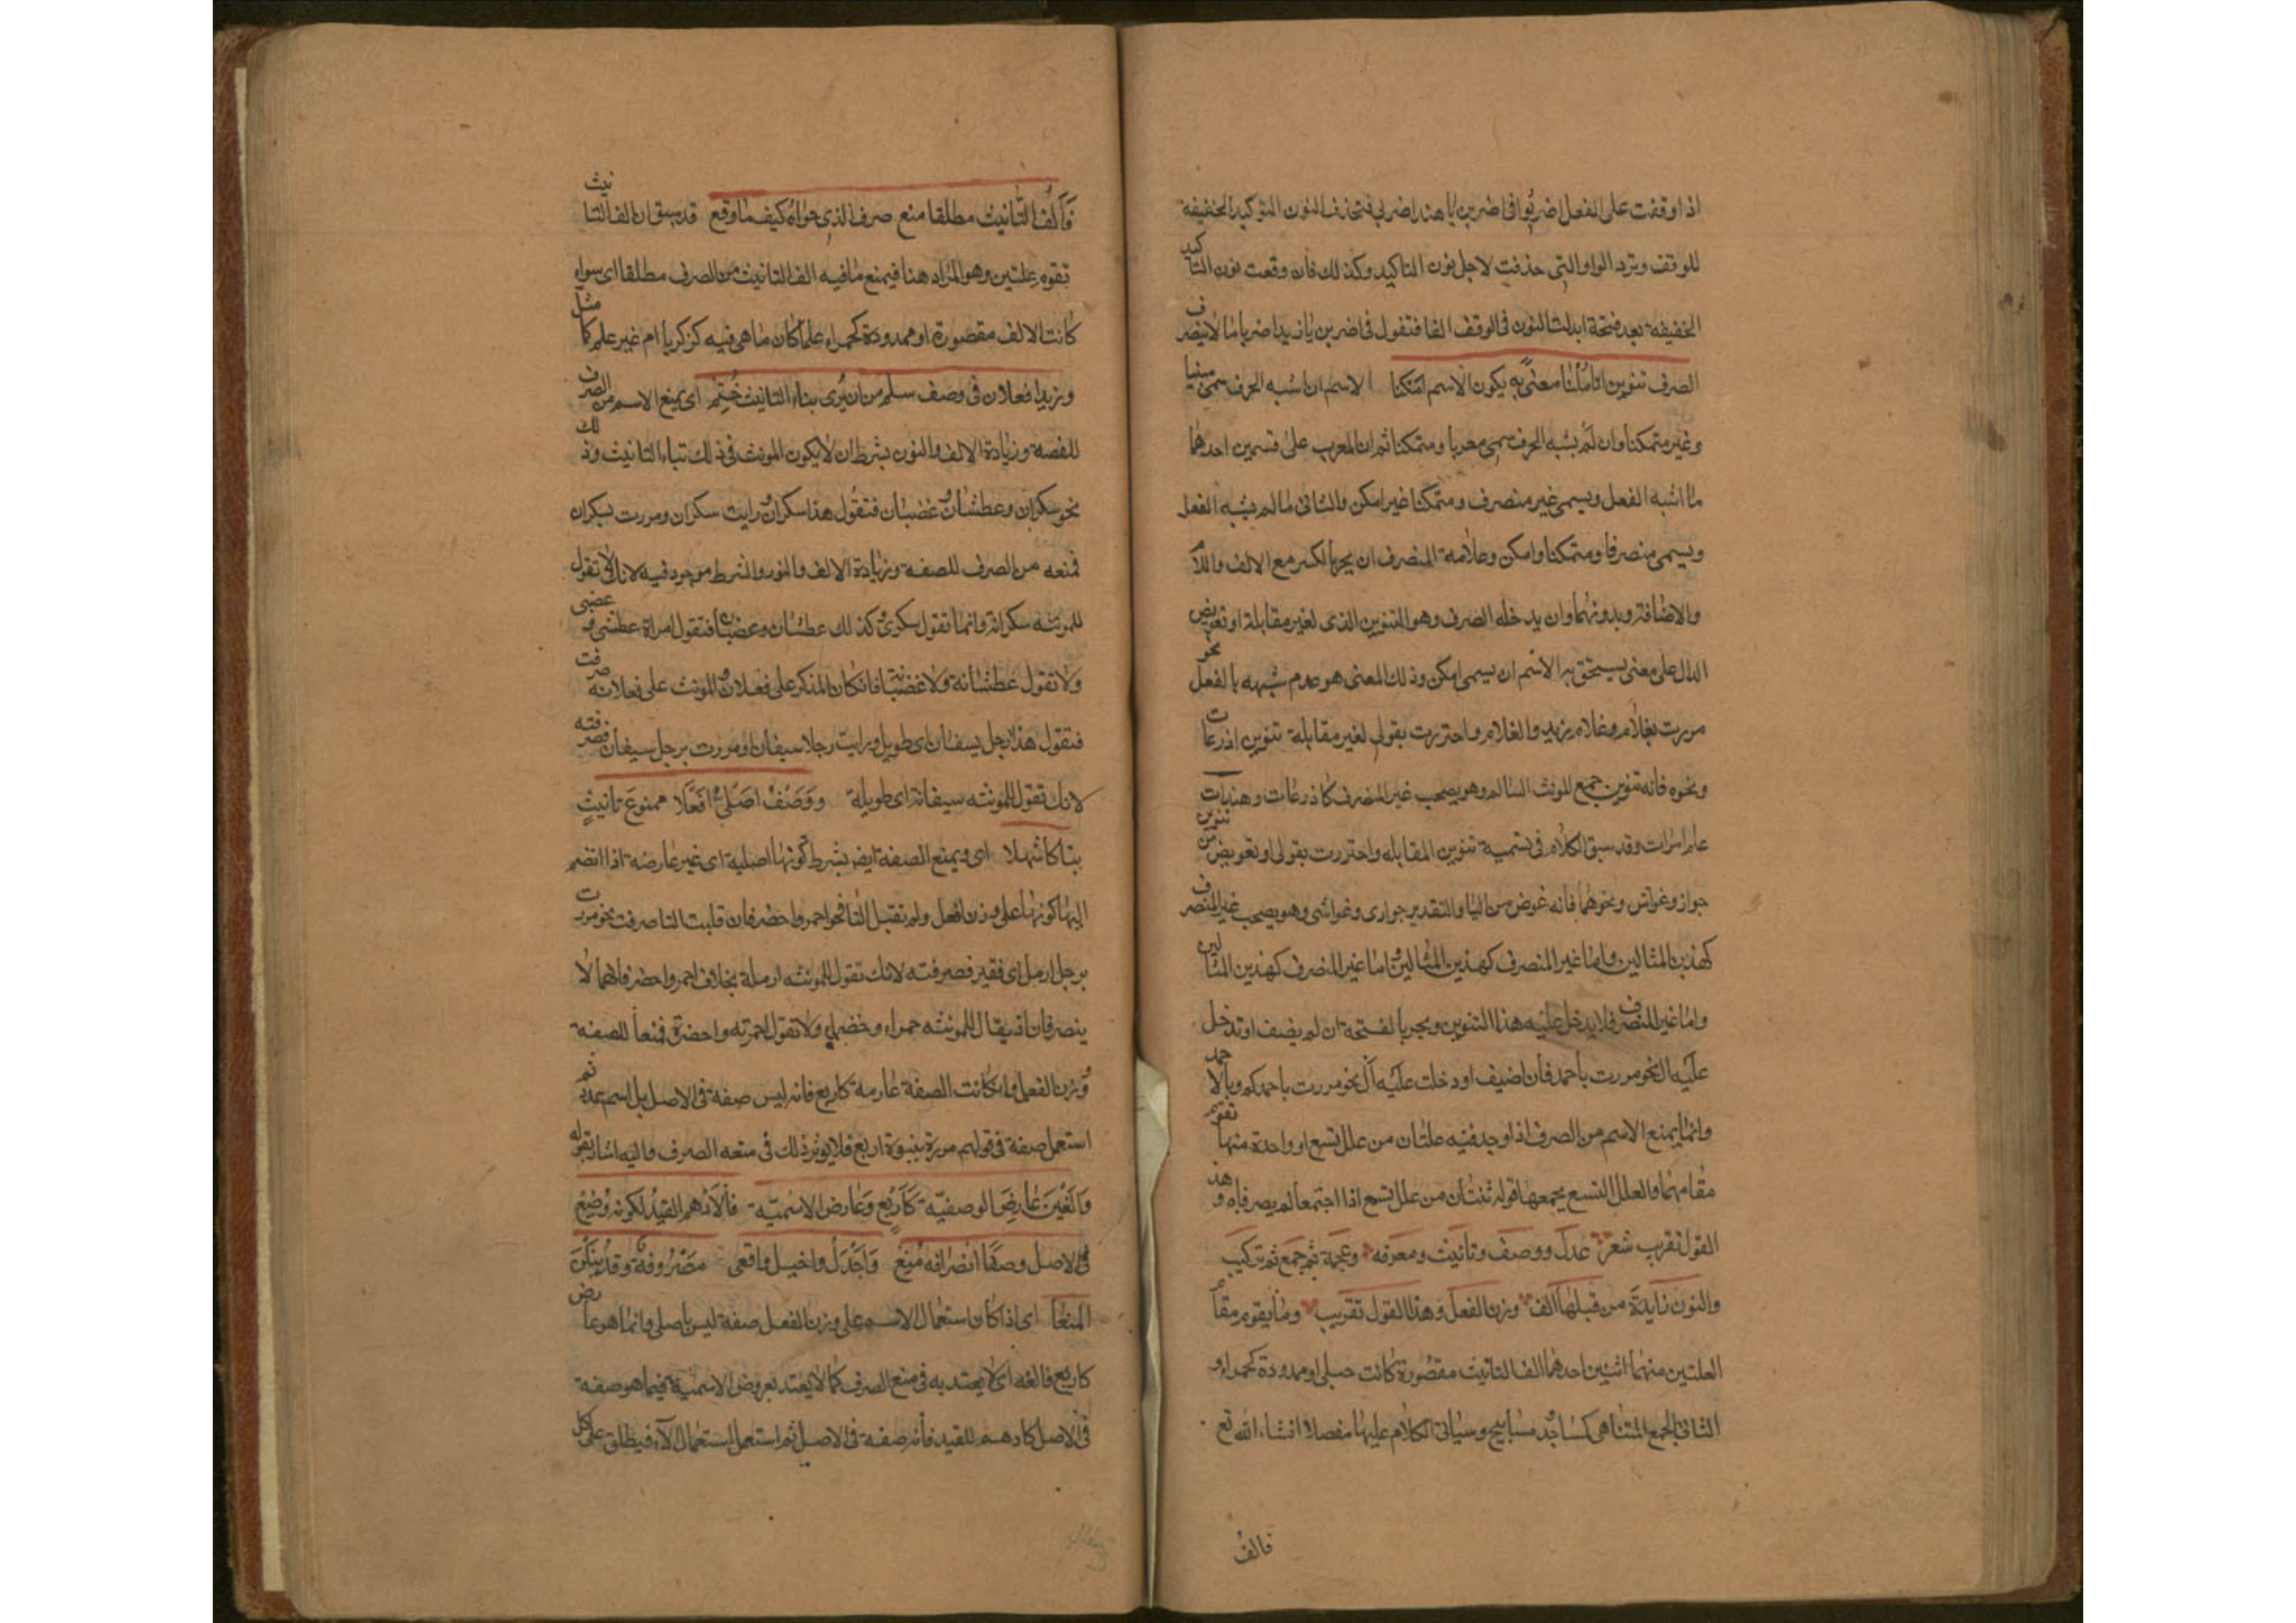 اذا وقفت على الفعل اضربوا فى اضربن يا هند اضربى فتحذف النون التوكيد الخفيفة
للوقف وترد الواو التى حذفت لاجل نون التاكيد وكذلك فان وقعت نون التاكيد
الخفيفة بعد فتحة ابدلت النون فى الوقف الفا فتقول فى اضربن يا زيد اضربا ما لا ينصرف
الصرف تنوين اتا مُبَيِّنا معنًى به يكون الاسم امكنا الاسم ان اشبه الحرف سمى مبنيا
وغير متمكنا وان لم يشبه الحرف سمى معربا ومتمكنا ثم ان المعرب على قسمين احدهما
ما اشبه الفعل ويسمى غير منصرف ومتمكنا غير امكن والثانى ما لم يشبه الفعل
ويسمى منصرفا ومتمكنا وامكن وعلامة المنصرف ان يجر بالكسر مع الالف واللام
والاضافة وبدونهما وان يدخله الصرف وهو التنوين الذى لغير مقابلة او تعويض
الدال على معنى يستحق به الاسم ان يسمى امكن وذلك المعنى هو عدم شبهه بالفعل نحو
مررت بغلام وغلام زيد والغلام واحترزت بقولى لغير مقابلة تنوين اذرعات
ونحوه فانه تنوين جمع المونث السالم وهو يصحب غير المنصرف كاذرعات وهندات
علم امرات وقد سبق الكلام فى تسمية تنوين المقابله واحترزت بقولى او تعويض من تنوين
جواز وغواش ونحوهما فانه عوض من اليا والتقدير جوارى وغواشى وهو يصحب غير المنصرف
كهذين المثالين واما غير المنصرف كهذين المثالين واما غير المنصرف كهذين المثالين
واما غير المنصرف فلا يدخل عليه هذا التنوين ويجر بالفتحة ان لم يضف او تدخل
عليه ال نحو مررت باحمد فان اضيف او دخلت عليه ال نحو مررت باحمدكم وبالاحمد
وانما يمنع الاسم من الصرف اذا وجد فيه علتان من علل تسع او واحدة منها تقوم
مقامهما والعلل التسع يجمعها قوله ثنتان من علل تسع اذا اجتمعا لم يصرفاه وهذ
القول تقريب شعر عدل ووصف وتانيث ومعرفه وعجمة ثم جمع ثم تركيب
والنون زايدة من قبلها الف وزن الفعل وهذا القول تقريب وما يقوم مقام
العلتين منهما اثنين احدهما الف التانيث مقصورة كانت حبلى او ممدودة كحمراء و
الثانى الجمع المتناهى كمساجد و مسابيح وسياتى الكلام عليها مفصلا انشاء الله تع
فالف
فَاَلُف التَّانيث مطلقا منع صرف الذى حواهُ كيف ما وقع قد سبق ان الف التانيث
تقوم علتين وهو المراد هنا فيمنع ما فيه الف التانيث من الصرف مطلقا اى سواء
كانت الالف مقصورة او ممدودة كحمراء علما كان ما هى فيه كزكريا ام غير علم كما مثل
وزيدا فعلان فى وصف سلم من ان يُرى بتاء التانيث خُتِمَ اى يمنع الاسم من الصرف
للصفة وزيادة الالف والنون بشرط ان لا يكون المونث فى ذلك بتاء التانيث وذلك
نحو سكران وعطشان وغضبان فتقول هذا سكران ورايت سكران ومررت بسكران
فمنعه من الصرف للصفة وزيادة الالف والنون والشرط موجود فيه لانك لا تقول
للمونثه سكرانة وانما تقول سكرى وكذلك عطشان وغضبان فتقول امراة عطشى وغضبى
ولا تقول عطشانة ولا غضبانة فان كان المذكر على فعلان والمونث على فعلانة صرفت
فتقول هذا رجل سيفان اى طويل ورايت رجلا سيفانا ومررت برجل سيفان فصرفته
لانك تقول للمونثه سيفانة اى طويلة ووَصْفٌ اَصْلِىٌّ اَفْعَلَا ممنوعَ تانيثٍ
بتا كاشهلا اى ويمنع الصفة ايض بشرط كونها اصلية اى غير عارضة اذا انضم
اليها كونها على وزن افعل ولم تقبل التا نحو احمر واخضر فان قبلت التا صرفت نحو مررت
برجل ارمل اى فقير فصرفته لانك تقول للمونثه ارملة بخلاف احمر واخضر فانهما لا
ينصرفان اذ يقال للمونثه حمراء وخضراء ولا تقول احمرة واخضرة فمنعا للصفة
ووزن الفعل وان كانت الصفة عارضة كاربع فانه ليس صفة فى الاصل بل اسم عدد ثم
استعمل صفة فى قولهم مررت بنسوة اربع فلا يوثر ذلك فى منعه الصرف واليه اشار بقوله
وَاَلْغِيَنَّ عارِضَ الوصفيّة كَاَرْبَعٍ وَعَارض الاسْميّة فالاَدْهم القَيْدُ لكونه وُضِعْ
فى الاصل وصفًا انصرافه مُنِعْ وَاَجْدَلٌ واخيل وافعى مَصْرُوفةٌ وقَدْ يَنَلْنَ
المنعَا اى اذا كان استعمال الاسم على وزن الفعل صفة ليس باصلى وانما هو عارض
كاربع فالغه اى لا يعتد به فى منع الصرف كما لا يعتد بعروض الاسمية فيما هو صفة
فى الاصل كادهم للقيد فانه صفة فى الاصل ثم استعمل استعمال الاسماء فيطلق على كل